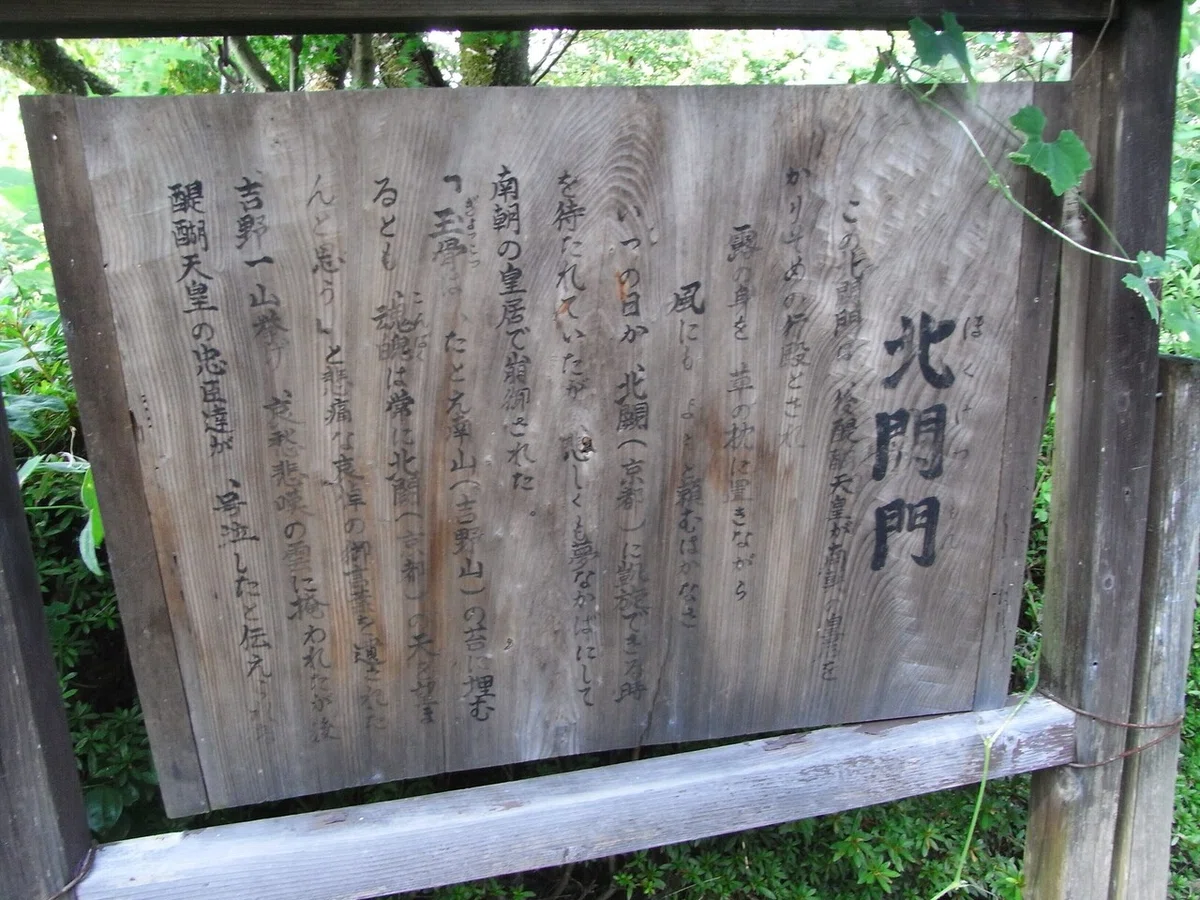 ほくけつもん
北闕門
この北闕門は、後醍醐天皇が南朝の皇居を
かりそめの行殿とされ
露の身を 草の枕に置きながら
風にも よもと頼むはかなさ
いつの日か、北闕(京都)に凱旋できる時
を待たれていたが 悲しくも夢なかばにして
南朝の皇居で崩御された。
ぎょっこつ
「玉骨は、たとえ南山(吉野山)の苔に埋む
こんぱく
るとも 魂魄は常に北闕(京都)の天を望ま
んと思う」と悲痛な哀惜の御言葉を遺された
吉野一山挙げ 哀愁悲嘆の雲に掩われたが後
醍醐天皇の忠臣達が、号泣したと伝えられ